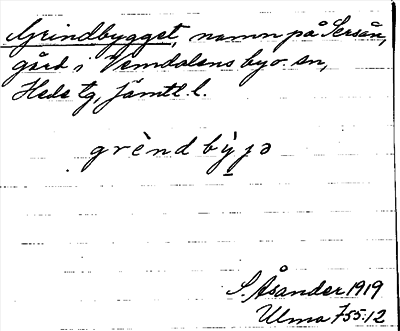 Grindbygget, namn på Sersån,
gård i Vemdalens by o. sn,
Hede tg, Jämtl. l.
grèndbỳjə
S. Åsander 1919
Ulma 755:12